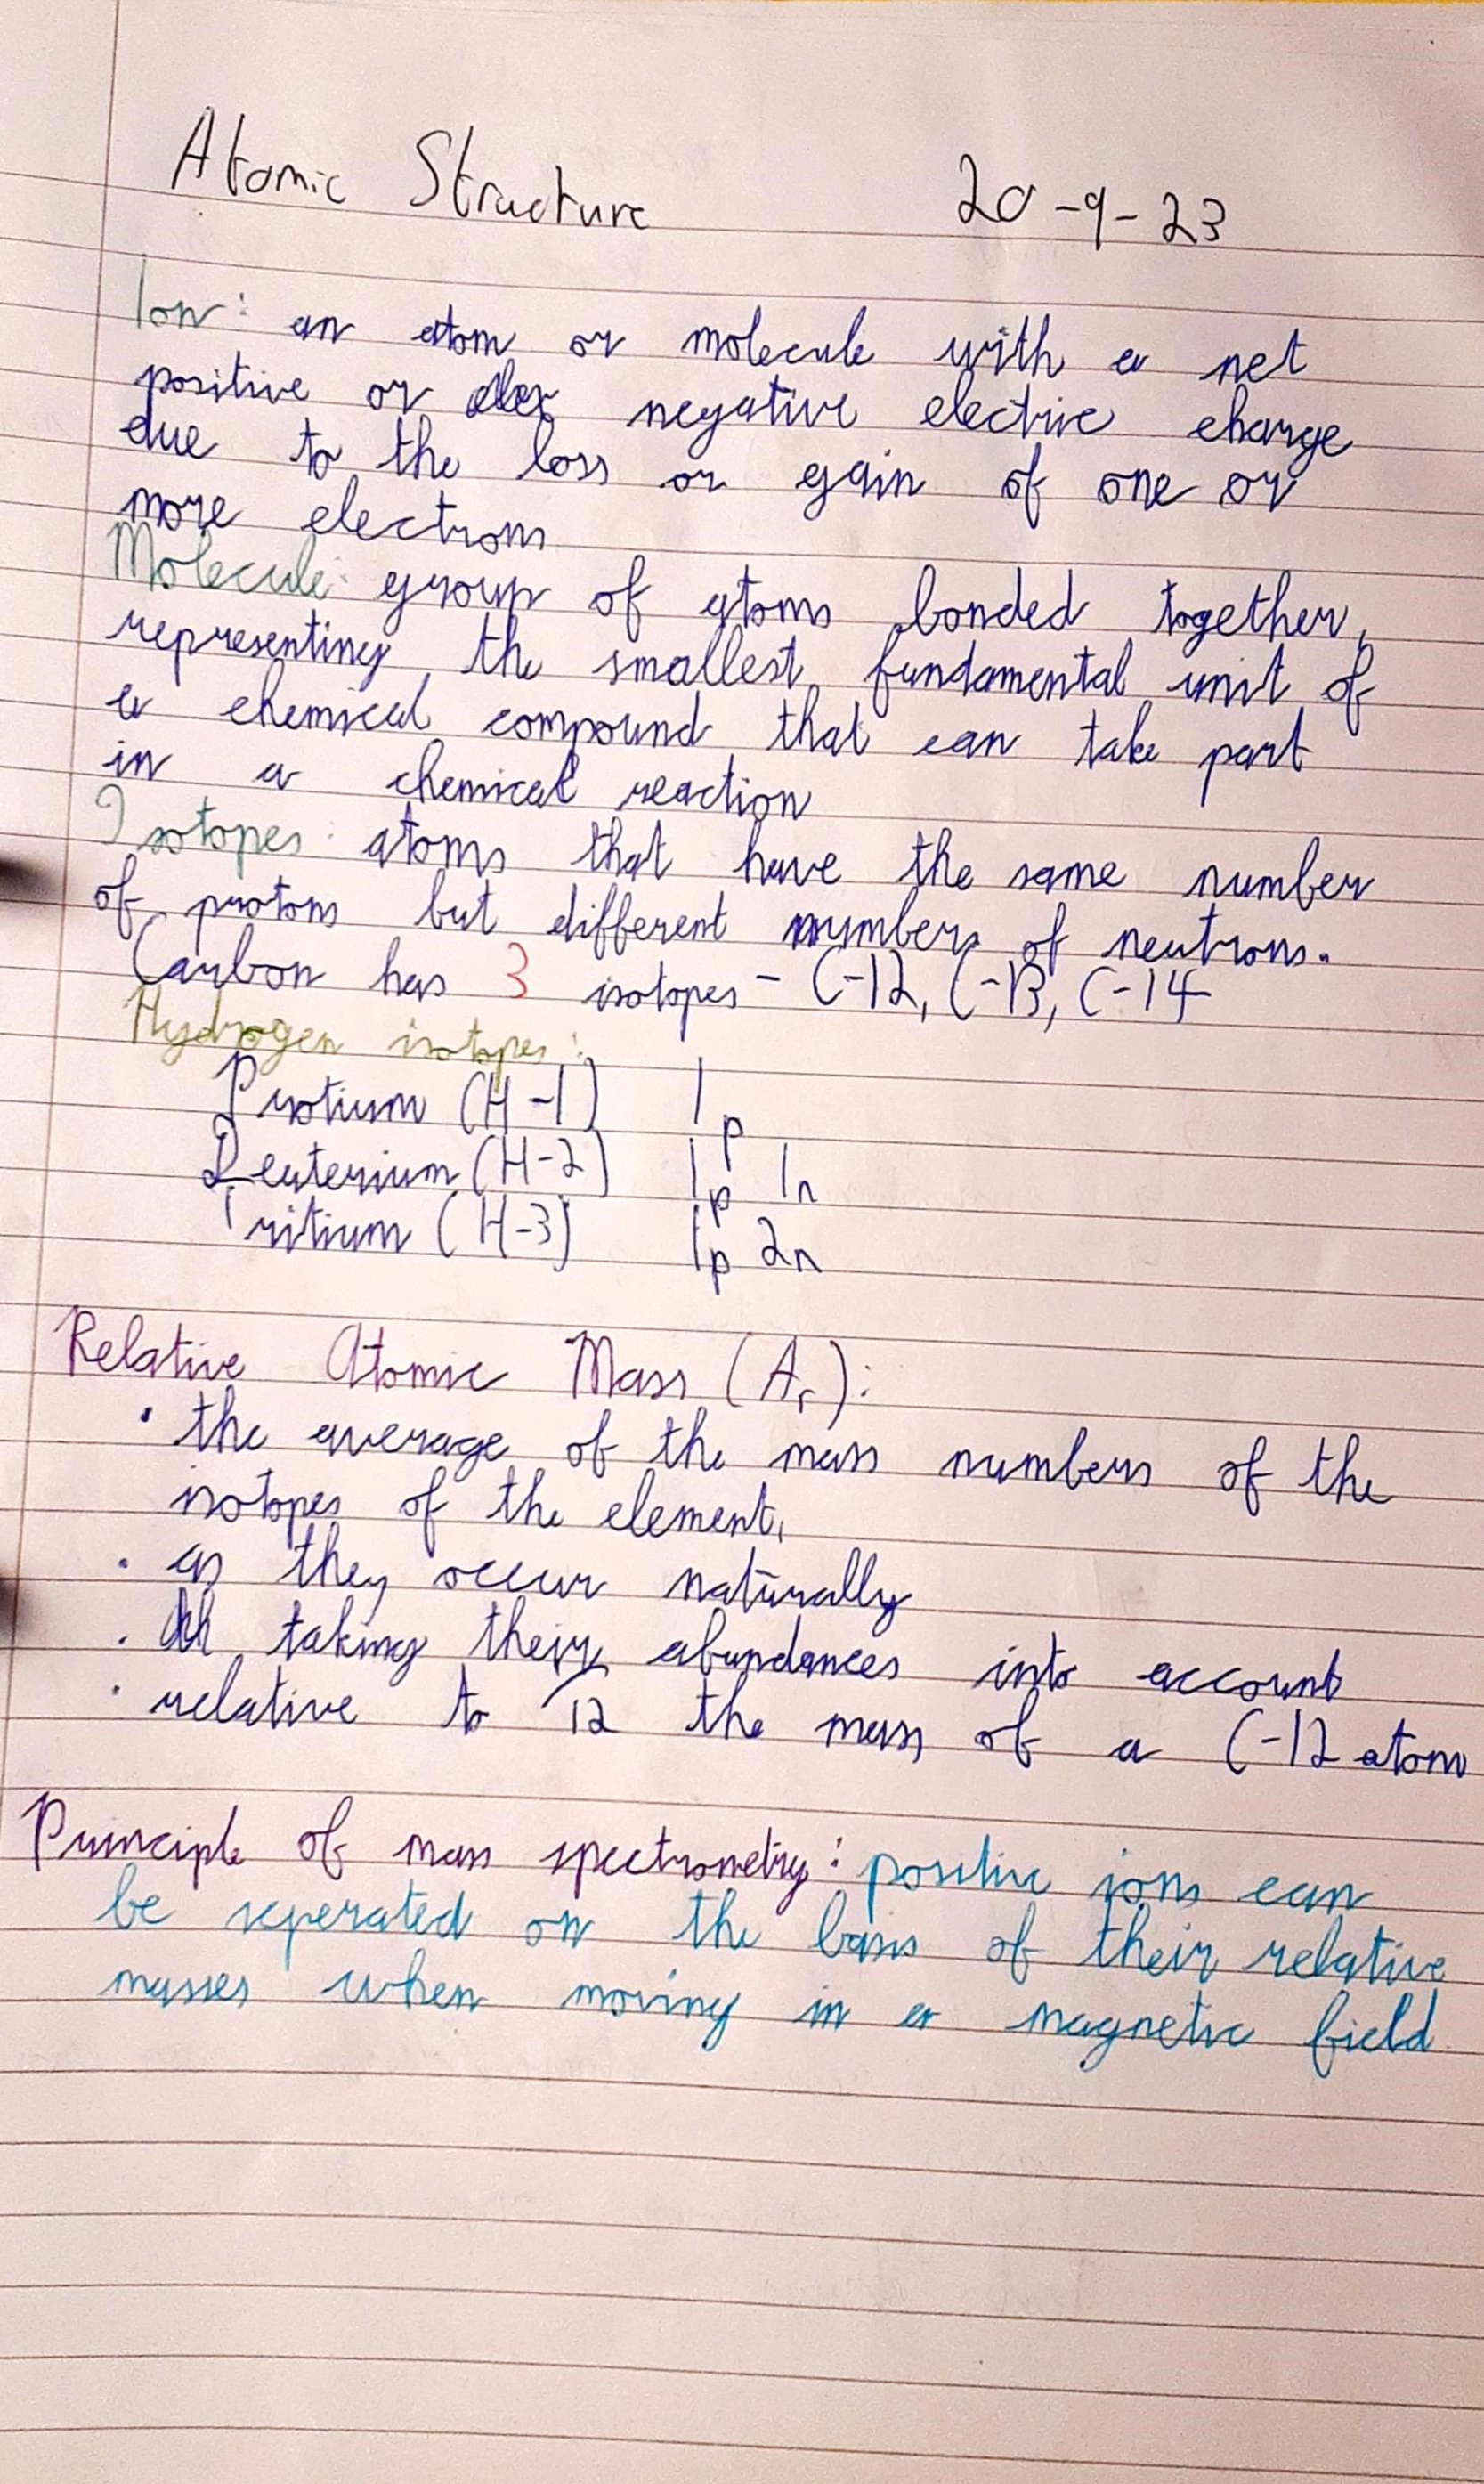 Atomic Structure 20-9-23
Ion: an atom or molecule with a net
positive or negative electric charge
due to the loss or gain of one or
more electrons
Molecule: group of atoms bonded together,
representing the smallest fundamental unit of
a chemical compound that can take part
in a chemical reaction
Isotopes: atoms that have the same number
of protons but different numbers of neutrons.
Carbon has 3 isotopes - C-12, C-13, C-14
Hydrogen isotopes:
Protium (H-1) 1p
Deuterium (H-2) 1p 1n
Tritium (H-3) 1p 2n
Relative Atomic Mass (Ar):
• the average of the mass numbers of the
isotopes of the element,
• as they occur naturally
• taking their abundances into account
• relative to 1/12 the mass of a C-12 atom
Principle of mass spectrometry: positive ions can
be seperated on the basis of their relative
masses when moving in a magnetic field